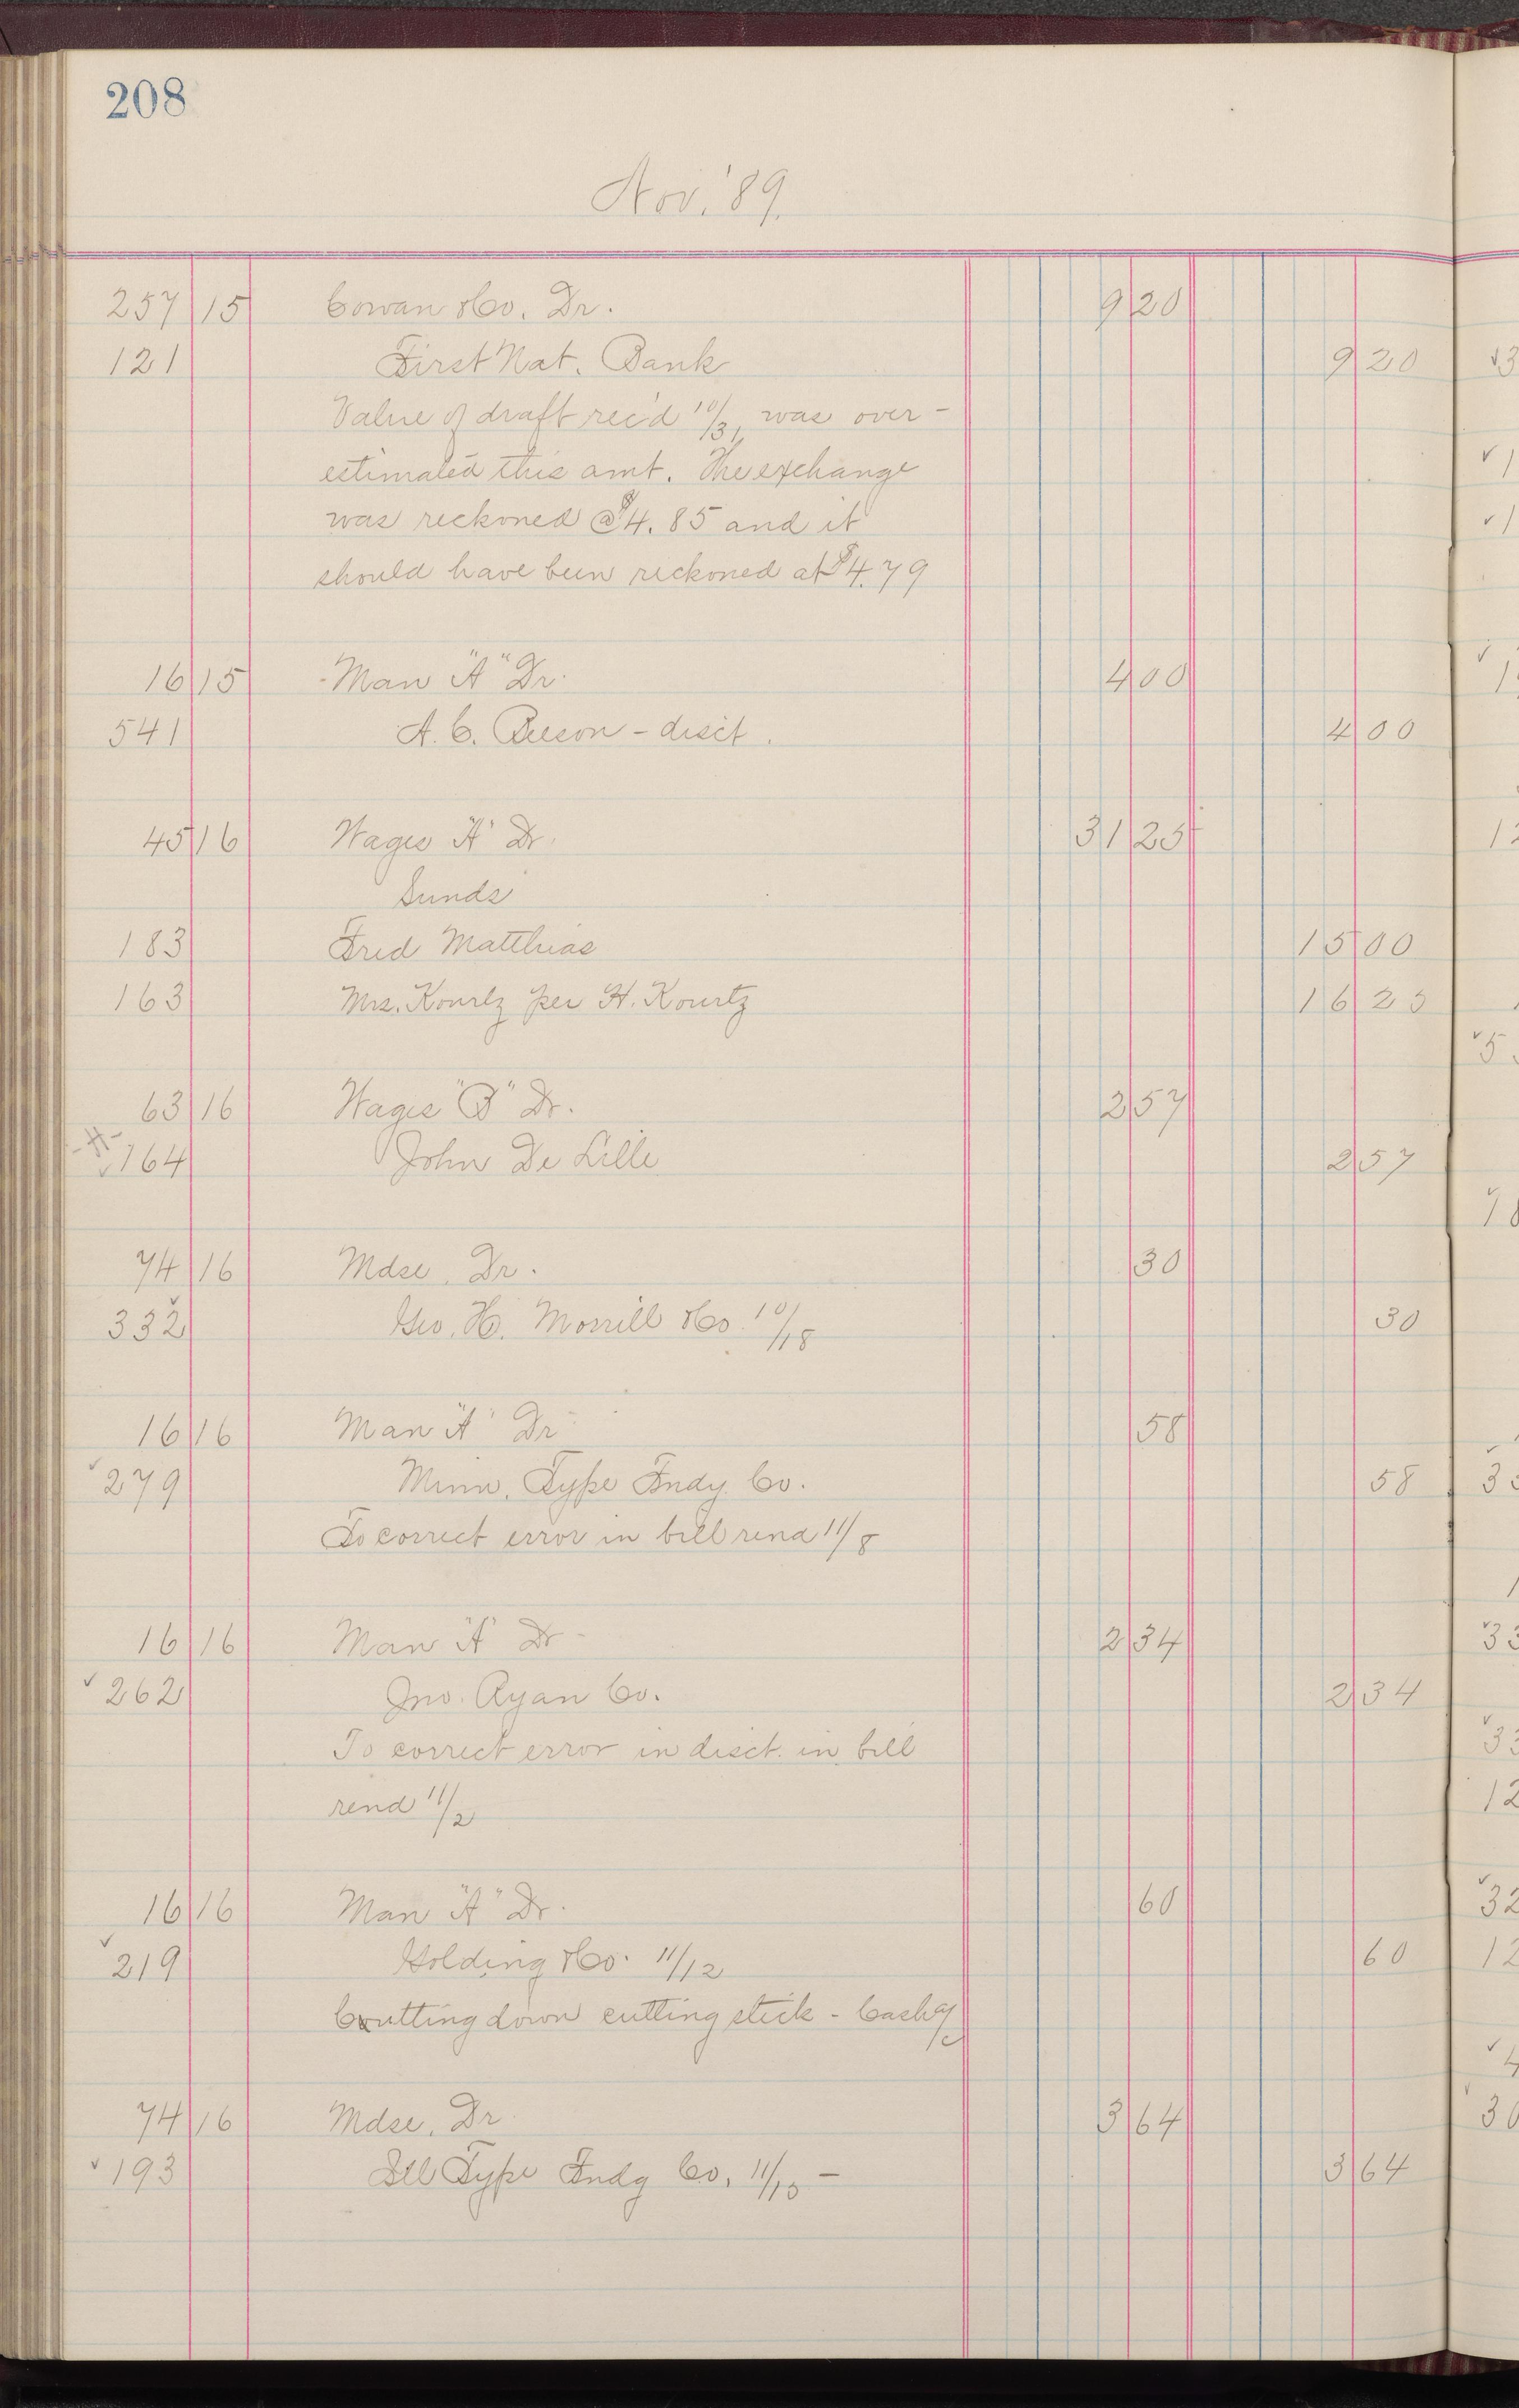 208
Nov. '89.
257 15 Cowan & Co. Dr. 9 20
121 First Nat. Bank 9 20
Value of draft rec'd 10/31 was over-
estimated this amt. The exchange
was reckoned @ $4.85 and it
should have been reckoned at $4.79
16 15 Man "A" Dr. 4 00
541 A. C. Beeson - disc't. 4 00
45 16 Wages "A" Dr. 31 25
Sunds
183 Fred Matthias 15 00
163 Mrs. Kourtz per H. Kourtz 16 25
63 16 Wages "B" Dr. 2 57
-H-
✓164 John De Lille 2 57
74 16 Mdse. Dr. 30
332✓ Geo. H. Morrill & Co. 10/18 30
16 16 Man "A" Dr 58
✓279 Minn. Type Fndy. Co. 58
To correct error in bill rend 11/8
16 16 Man "A" Dr 2 34
✓262 Jno. Ryan Co. 2 34
To correct error in disct. in bill
rend 11/2
16 16 Man "A" Dr. 60
✓219 Golding & Co. 11/12 60
Cutting down cutting stick - Cash a/c
74 16 Mdse. Dr 3 64
✓193 Ill Type Fndg Co. 11/15 - 3 64